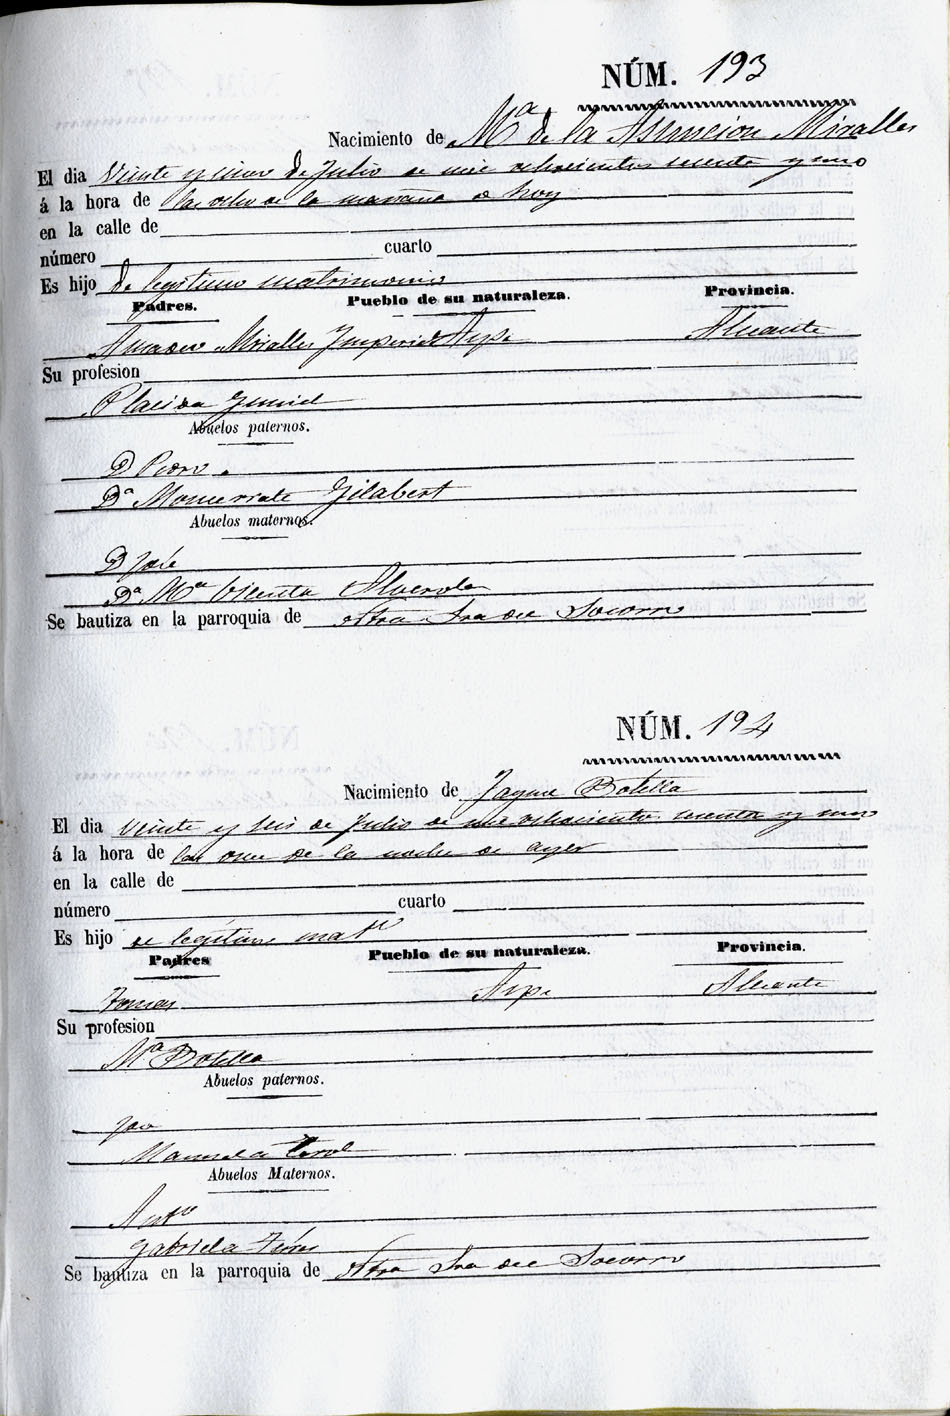 NÚM. 193
Nacimiento de Mª de la Asuncion Miralles
El dia Veinte y cinco de Julio de mil ochocientos sesenta y uno
á la hora de las ocho de la mañana de hoy
en la calle de
número cuarto
Es hijo de legitimo matrimonio
Padres. Pueblo de su naturaleza. Provincia.
Amador Miralles Imperial Aspe Alicante
Su profesion
Placida
Abuelos paternos.
D Pedro
Dª Monserrate Gilabert
Abuelos maternos.
D José
Dª Mª Vicenta
Se bautiza en la parroquia de Ntra Sra del Socorro
NÚM. 194
Nacimiento de Jayme Botella
El dia veinte y seis de Julio de mil ochocientos sesenta y uno
á la hora de las once de la noche de ayer
en la calle de
número cuarto
Es hijo de legítimo matº
Padres Pueblo de su naturaleza. Provincia.
Tomas Aspe Alicante
Su profesion
Mª Botella
Abuelos paternos.
Manuela Terol
Abuelos Maternos.
Antº
Gabriela
Se bautiza en la parroquia de Ntra Sra del Socorro